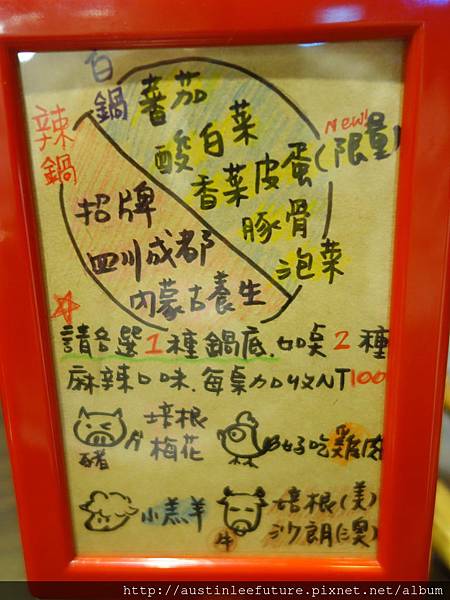 白鍋
番茄
酸白菜
香菜皮蛋(限量)
New!
豚骨
泡菜
辣鍋
招牌
四川成都
內蒙古養生
請各選1種鍋底.如桌2種
麻辣口味.每桌加收NT100
豬
培根
梅花
好吃雞肉
小羔羊
牛
培根(美)
沙朗(澳)
http://austinleefuture.pixnet.net/album